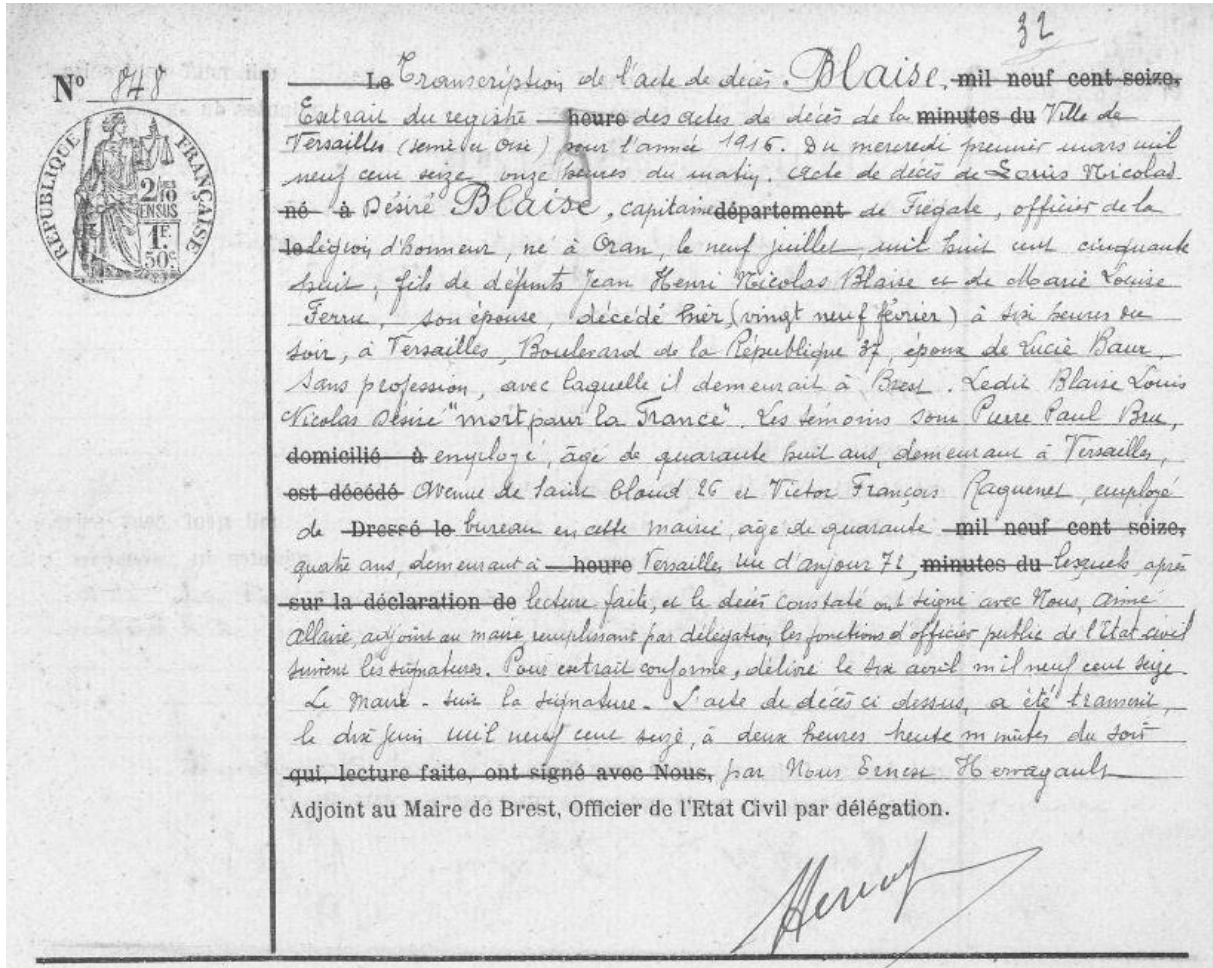 32
Nº 848
RÉPUBLIQUE FRANÇAISE
2/10 EN SUS
1F. 50c
Le Transcription de l'acte de décès Blaise, mil neuf cent seize,
Extrait du registre heure des actes de décès de la minutes du Ville de
Versailles (Seine et Oise) pour l'année 1916. Du mercredi premier mars mil
neuf cent seize, onze heures du matin. Acte de décès de Louis Nicolas
né à Désiré Blaise, capitaine département de Frégate, officier de la
le Légion d'honneur, né à Oran, le neuf juillet, mil huit cent cinquante
huit, fils de défunts Jean Henri Nicolas Blaise et de Marie Louise
Ferru, son épouse, décédé hier, (vingt neuf février) à six heures du
soir, à Versailles, Boulevard de la République 37, époux de Lucie Baur,
sans profession, avec laquelle il demeurait à Brest. Ledit Blaise Louis
Nicolas Désiré "mort pour la France". Les témoins sont Pierre Paul Bru,
domicilié à employé, âgé de quarante huit ans, demeurant à Versailles,
est décédé Avenue de Saint Cloud 26 et Victor François Raguenet, employé
de Dressé le bureau en cette mairie, âgé de quarante mil neuf cent seize,
quatre ans, demeurant à heure Versailles rue d'anjou 72, minutes du lesquels, après
sur la déclaration de lecture faite, et le décès constaté ont signé avec Nous, Aimé
Allaire, adjoint au maire, remplissant par délégation, les fonctions d'officier public de l'Etat civil
suivent les signatures. Pour extrait conforme, délivré le six avril mil neuf cent seize
Le Maire - suit la signature - L'acte de décès ci dessus, a été transcrit,
le dix juin mil neuf cent seize, à deux heures trente minutes du soir
qui, lecture faite, ont signé avec Nous, par Nous Ernest Hervagault
Adjoint au Maire de Brest, Officier de l'Etat Civil par délégation.